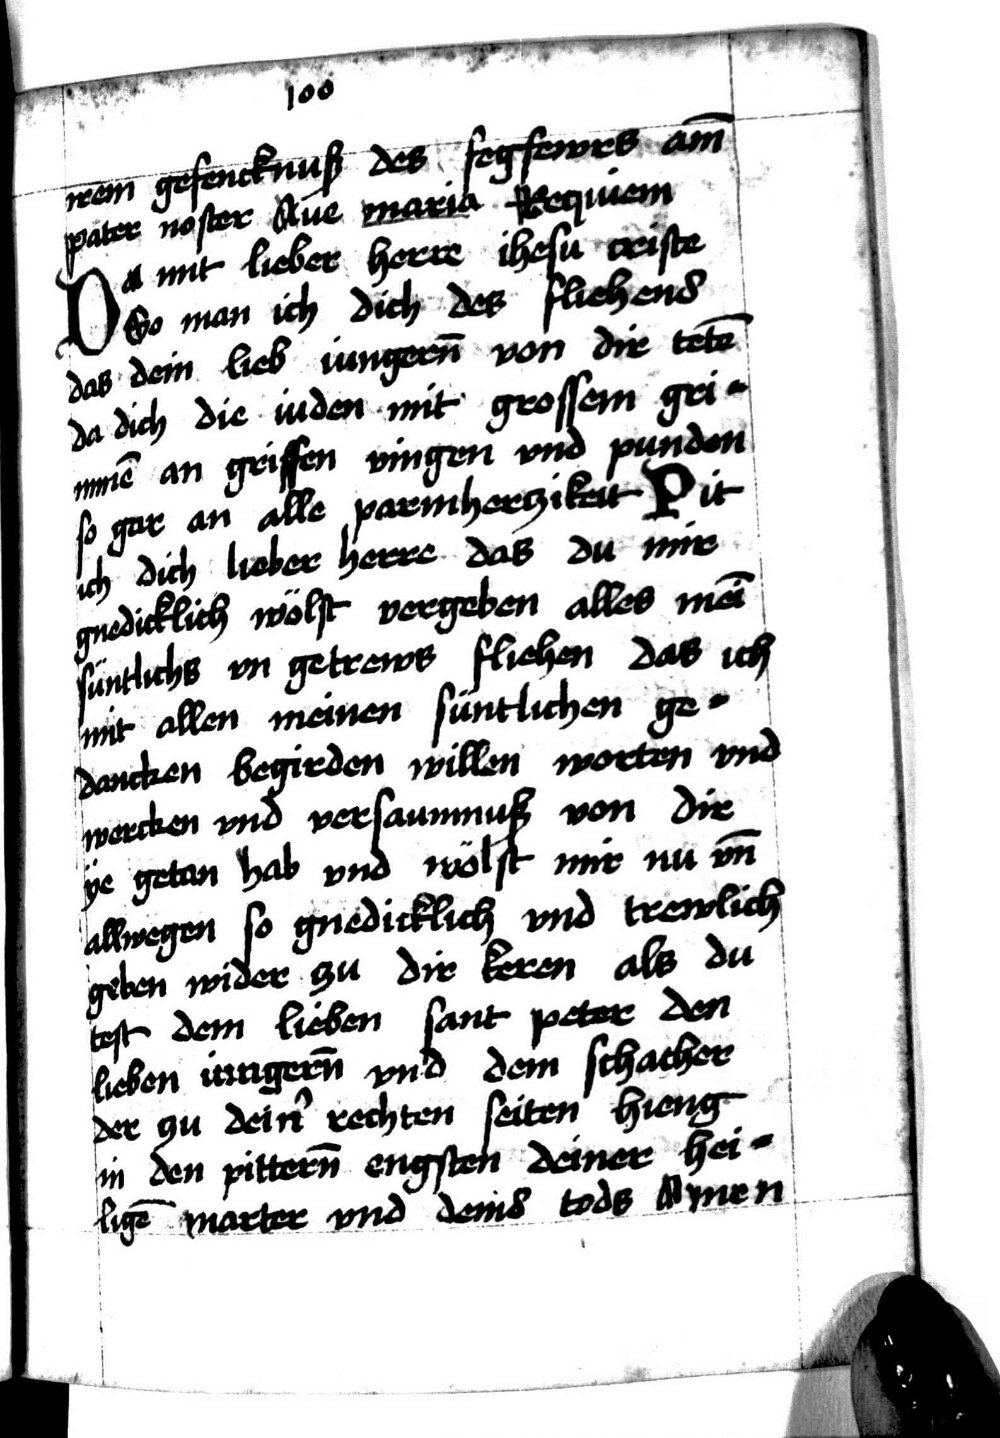 100
irem gefencknuß des fegfewrs am̅
pater noster Aue maria Requiem
Da mit lieber herre ihesu criste
So man ich dich des fliehens
das dein lieb iungern̅ von dir tetē
da dich die iuden mit grossem gri-
mmē an griffen vingen vnd punden
so gar an alle parmhertzikeit Pit
ich dich lieber herre das du mir
gnedicklich wölst vergeben alles mei̅
süntlichs vn getrews fliehen das ich
mit allen meinen süntlichen ge-
dancken begirden willen worten vnd
wercken vnd versaumnuß von dir
ÿe getan hab vnd wölst mir nu vn̅
allwegen so gnedicklich vnd trewlich
geben wider zu dir keren als du
test dem lieben sant peter den
lieben iungern̅ vnd dem schacher
der zu dein̾ rechten seiten hieng
in den pittern̅ engsten deiner hei-
ligē marter vnd deins tods Amen